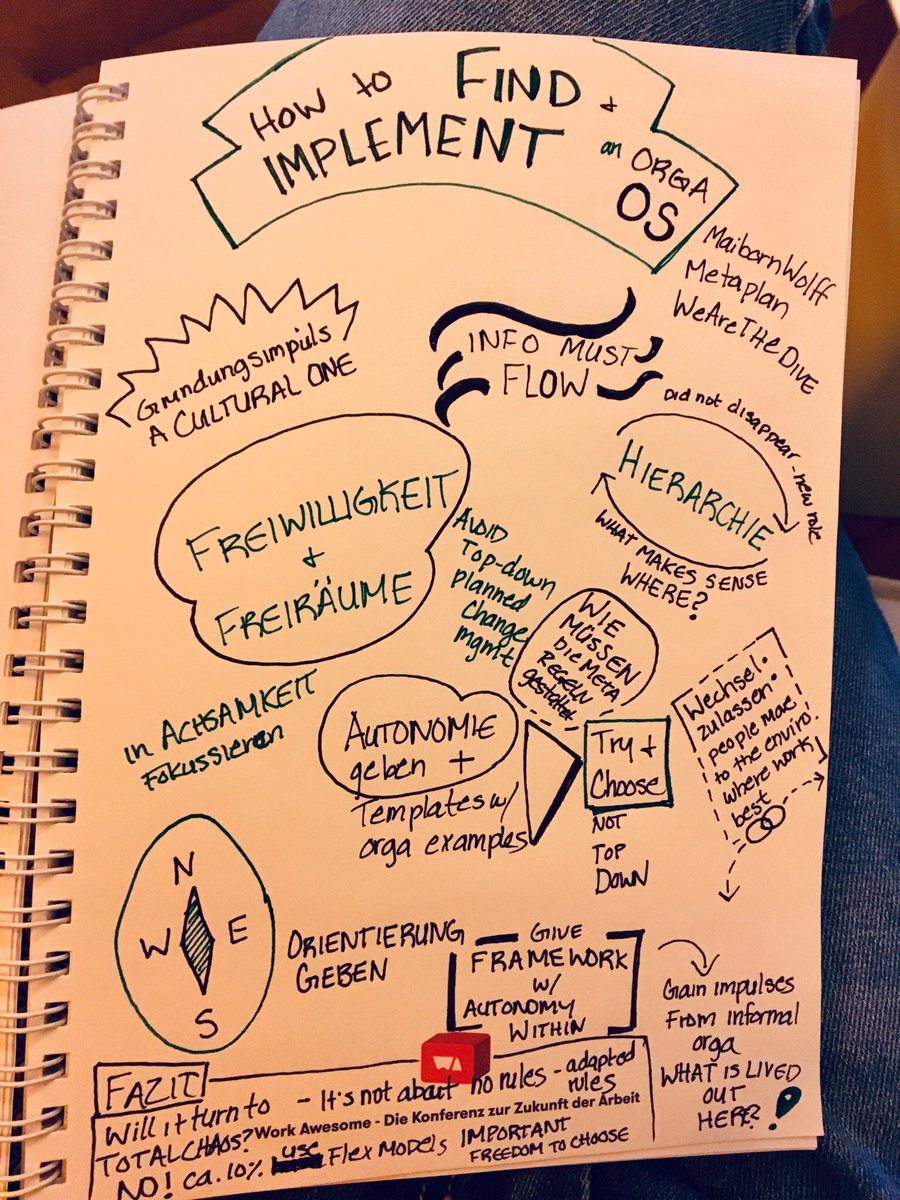 How to FIND +
IMPLEMENT an ORGA
OS
MaibornWolff
Metaplan
WeAreTHeDive
Gründungsimpuls
A CULTURAL ONE
INFO MUST
FLOW
Did not disappear - new role
HIERARCHIE
WHAT MAKES SENSE
WHERE?
FREIWILLIGKEIT
+
FREIRÄUME
AVOID
Top-down
planned
change
mgmt
WIE
MÜSSEN
DIE META
REGELN
gestaltet
in ACHSAMKEIT
Fokussieren
AUTONOMIE
geben +
Templates w/
orga examples
Try +
Choose
NOT
TOP
DOWN
Wechsel
zulassen
people move
to the enviro.
where work
best
N
W E
S
ORIENTIERUNG
GEBEN
GIVE
FRAMEWORK
w/
AUTONOMY
WITHIN
Gain impulses
From informal
orga
WHAT IS LIVED
OUT
HERE?
FAZIT
Will it turn to
TOTAL CHAOS?
NO! ca. 10% use Flex Models
- It's not about no rules - adapted
rules
WA
Work Awesome - Die Konferenz zur Zukunft der Arbeit
IMPORTANT
FREEDOM TO CHOOSE